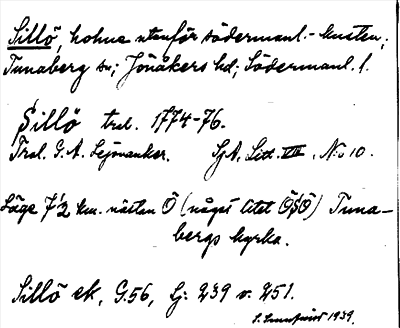 Sillö, holme utanför södermanl.-kusten;
Tunaberg sn; Jönåkers hd; Södermanl. l.
Sillö trol. 1774-76.
Trol. G. A. Lejonanker. SjA, Litt. VIII, No 10.
Läge 7 1/2 km. nästan Ö (något litet ÖSÖ) Tuna-
bergs kyrka.
Sillö ek, G.56, Hj: 239 v. 251.
1939.